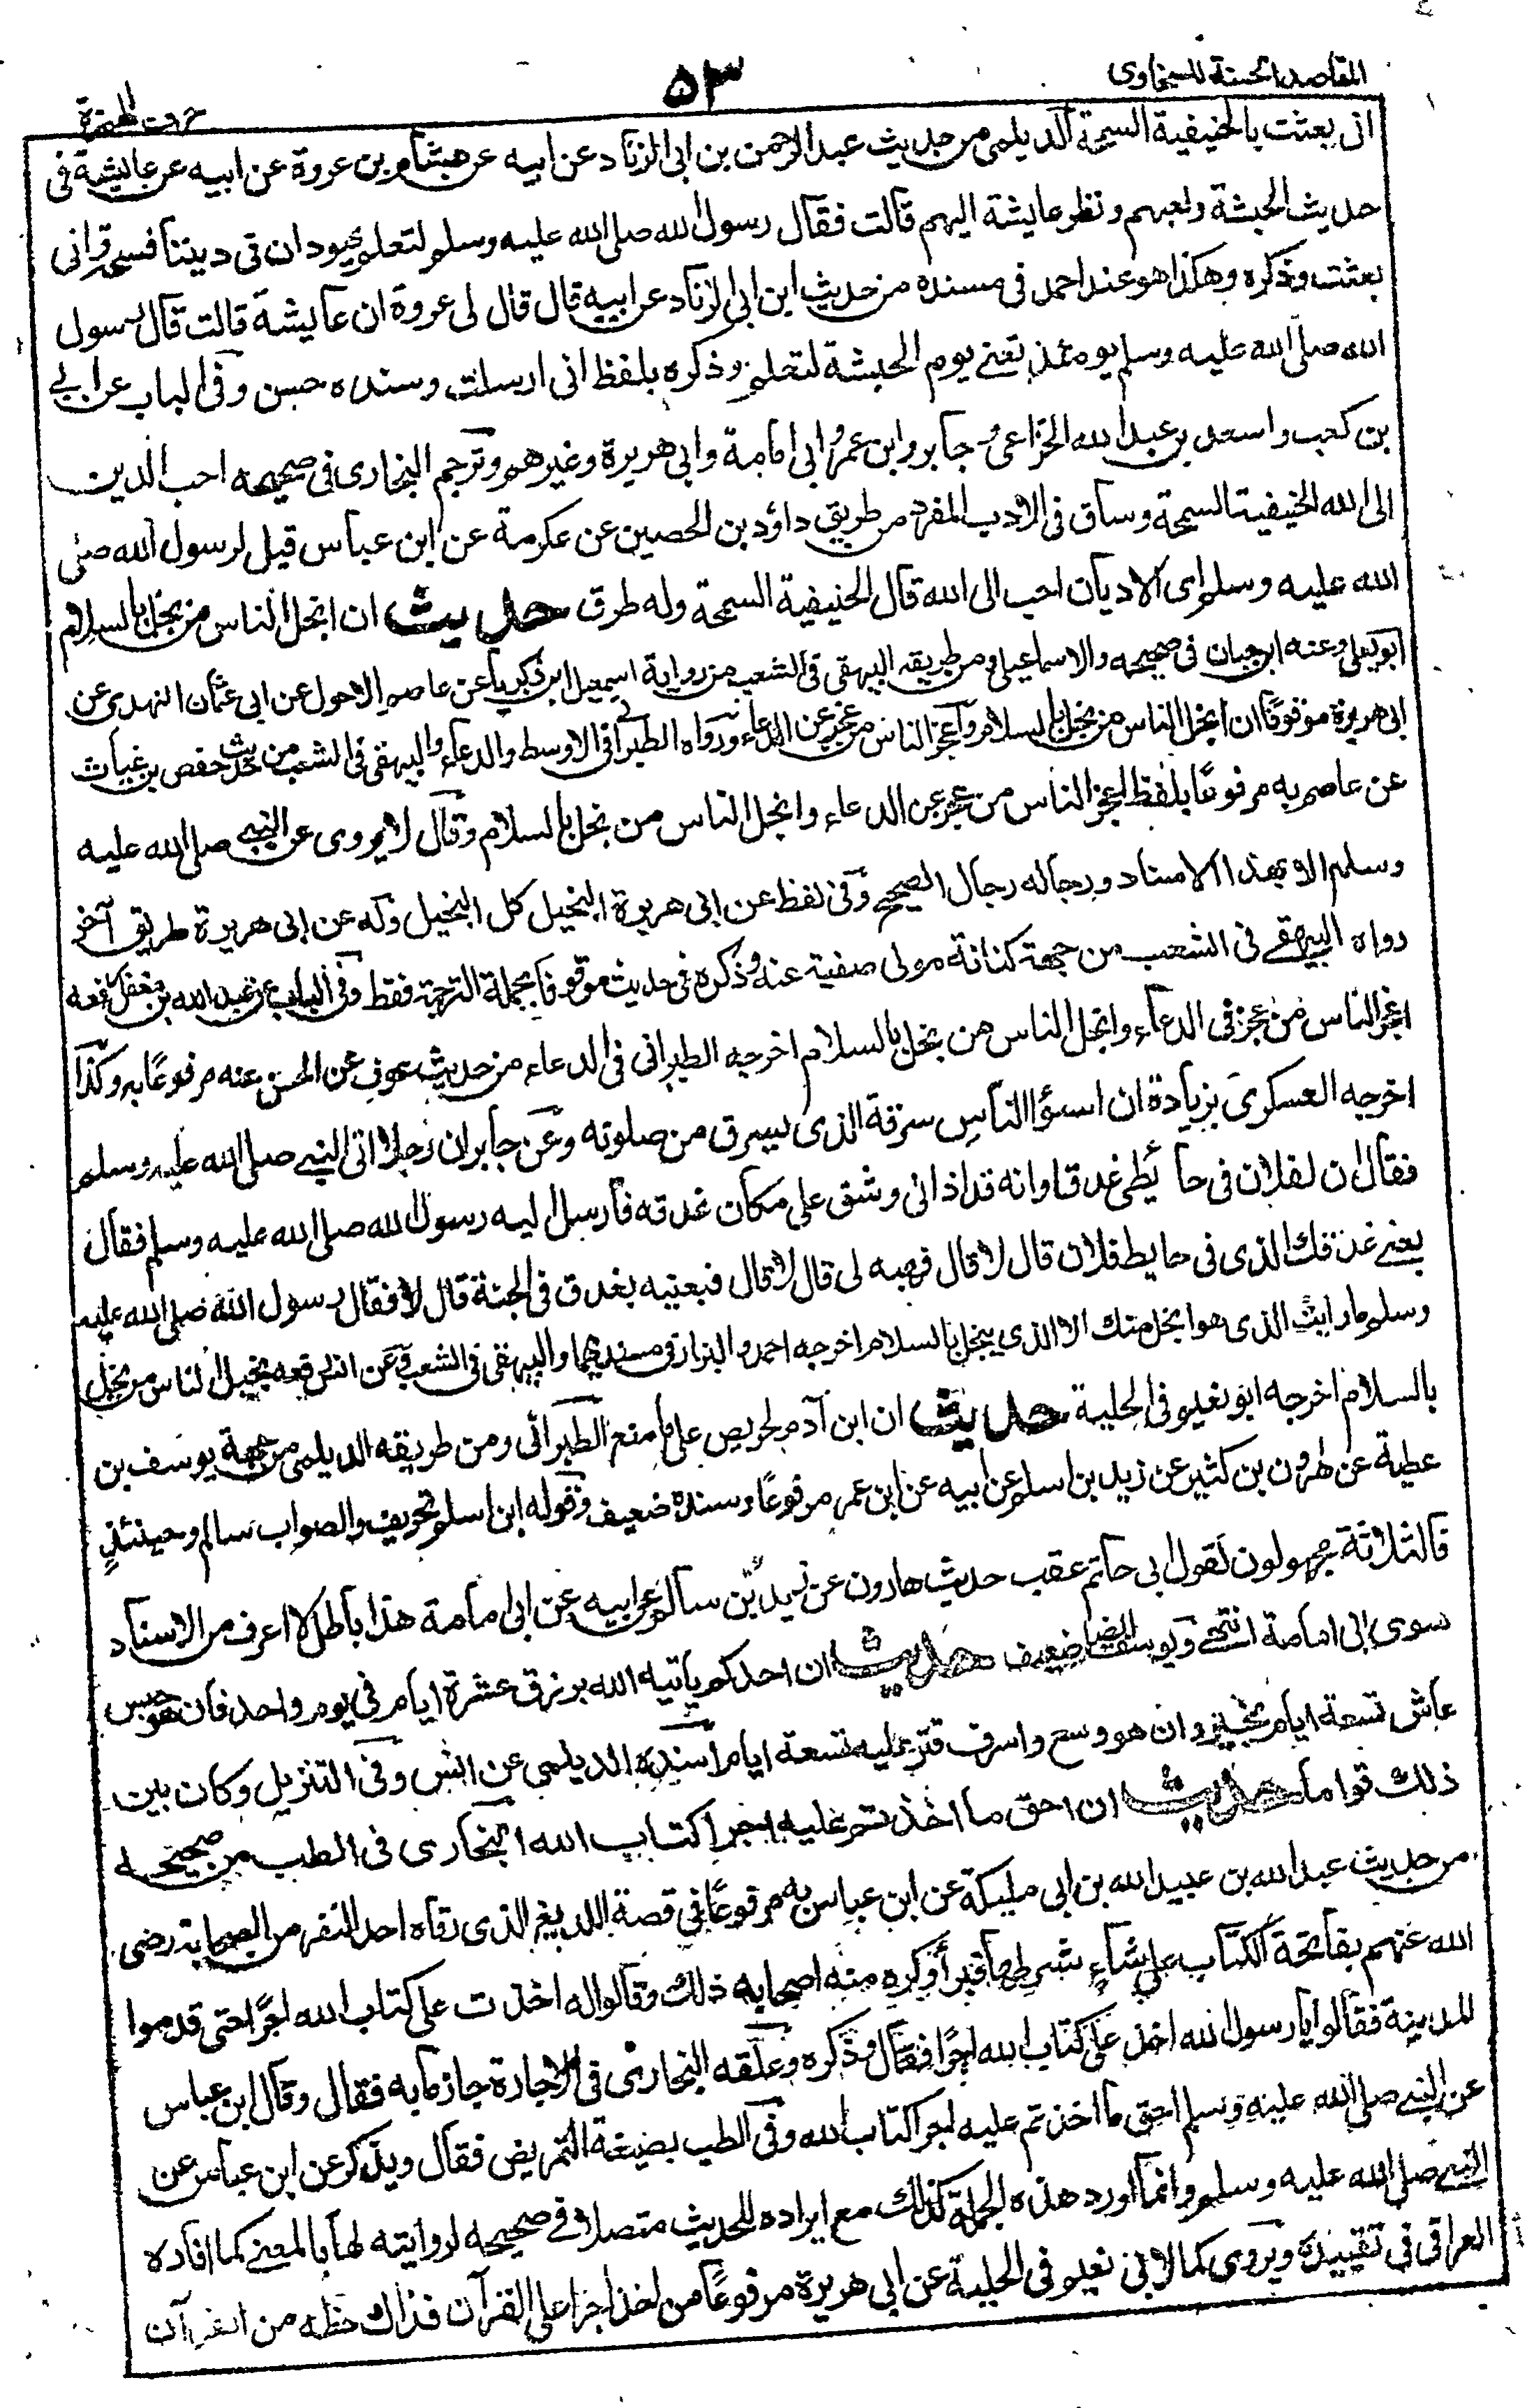 المقاصد الحسنة للسخاوى
٥٣
حرف الهمزة
انى بعثت بالحنيفية السمحة الديلمى من حديث عبد الرحمن بن ابى الزناد عن ابيه عن هشام بن عروة عن ابيه عن عايشة فى
حديث الحبشة ولعبهم ونظر عايشة اليهم قالت فقال رسول الله صلى الله عليه وسلم لتعلم يهود ان فى ديننا فسحة وانى
بعثت وذكره وهكذا هو عند احمد فى مسنده من حديث ابن ابى الزناد عن ابيه قال قال لى عروة ان عايشة قالت قال رسول
الله صلى الله عليه وسلم يومئذ تعنے يوم الحبشة لتعلم وذكره بلفظ انى ارسلت وسنده حسن وفى الباب عن ابى
بن كعب واسعد بن عبد الله الخزاعى وجابر وابن عمر وابى امامة وابى هريرة وغيرهم وترجم البخارى فى صحيحه احب الدين
الى الله الحنيفية السمحة وساق فى الادب المفرد من طريق داؤد بن الحصين عن عكرمة عن ابن عباس قيل لرسول الله صلى
الله عليه وسلم اى الاديان احب الى الله قال الحنيفية السمحة وله طرق حديث ان ابخل الناس من بخل بالسلام
ابويعلى وعنه ابن حبان فى صحيحه والاسماعيلى ومن طريقه البيهقى فى الشعب من رواية اسمعيل ابن زكريا عن عاصم الاحول عن ابى عثمان النهدى عن
ابى هريرة موقوفا ان ابخل الناس من بخل بالسلام واعجز الناس من عجز عن الدعاء ورواه الطبرانى فى الاوسط والدعاء والبيهقى فى الشعب من حديث حفص بن غياث
عن عاصم به مرفوعًا بلفظ اعجز الناس من عجز عن الدعاء وابخل الناس من بخل بالسلام وقال لا يروى عن النبے صلى الله عليه
وسلم الا بهذا الاسناد ورجاله رجال الصحيح وفى لفظ عن ابى هريرة البخيل كل البخيل وله عن ابى هريرة طريق آخر
رواه البيهقے فى الشعب من جهة كنانة مولى صفية عنه وذكره فى حديث موقوفا بجملة الترجمة فقط وفى الباب عن عبد الله بن مغفل رفعه
اعجز الناس من عجز فى الدعاء وابخل الناس من بخل بالسلام اخرجه الطبرانى فى الدعاء من حديث عوف عن الحسن عنه مرفوعًا به وكذا
اخرجه العسكرى بزيادة ان اسوؤا الناس سرقة الذى يسرق من صلوته وعن جابر ان رجلا اتى النبے صلى الله عليه وسلم
فقال ان لفلان فى حائطى غدقا وانه قد اذانى وشق على مكان غدقه فارسل اليه رسول الله صلى الله عليه وسلم فقال
بعنے غدقك الذى فى حايط فلان قال لا قال فهبه لى قال لا قال فبعنيه بغدق فى الجنة قال لا فقال رسول الله صلى الله عليه
وسلم ما رايت الذى هو ابخل منك الا الذى يبخل بالسلام اخرجه احمد والبزار فى مسنديهما والبيهقى فى الشعب وعن انس رفعه بخيل الناس من بخل
بالسلام اخرجه ابو نعيم فى الحلية حديث ان ابن آدم لحريص على ما منع الطبرانى ومن طريقه الديلمى من جهة يوسف بن
عطية عن هرون بن كثير عن زيد بن اسلم عن ابيه عن ابن عمر مرفوعًا وسنده ضعيف وقوله ابن اسلم تحريف والصواب سالم وحينئذٍ
فالثلاثة مجهولون لقول ابى حاتم عقب حديث هارون عن زيد بن سالم عن ابيه عن ابى امامة هذا باطل لا اعرف من الاسناد
سوى ابى امامة انتهے ويوسف ايضا ضعيف حديث ان احدكم ياتيه الله برزق عشرة ايام فى يوم واحد فان هو حبس
عاش تسعة ايام بخير وان هو وسع واسرف قتر عليه تسعة ايام اسنده الديلمى عن انس وفى التنزيل وكان بين
ذلك قواما حديث ان احق ما اخذتم عليه اجرا كتاب الله البخارى فى الطب من صحيحه
من حديث عبد الله بن عبيد الله بن ابى مليكة عن ابن عباس به مرفوعًا فى قصة اللديغ الذى رقاه احد النفر من الصحابة رضى
الله عنهم بفاتحة الكتاب على شاء شرطها فبرأ وكره منه اصحابه ذلك وقالوا له اخذت على كتاب الله اجرًا حتى قدموا
المدينة فقالوا يا رسول الله اخذ على كتاب الله اجرًا فقال وذكره وعلقه البخارى فى الاجارة جازما به فقال وقال ابن عباس
عن النبے صلى الله عليه وسلم احق ما اخذتم عليه اجرا كتاب الله وفى الطب بصيغة التمريض فقال ويذكر عن ابن عباس عن
النبے صلى الله عليه وسلم وانما اورد هذه الجملة كذلك مع ايراده للحديث متصلا فے صحيحه لروايته لها بالمعنے كما افاده
العراقى فى تقييده ويروى كما لابى نعيم فى الحلية عن ابى هريرة مرفوعًا من اخذ اجرا على القرآن فذاك حظه من القرآن